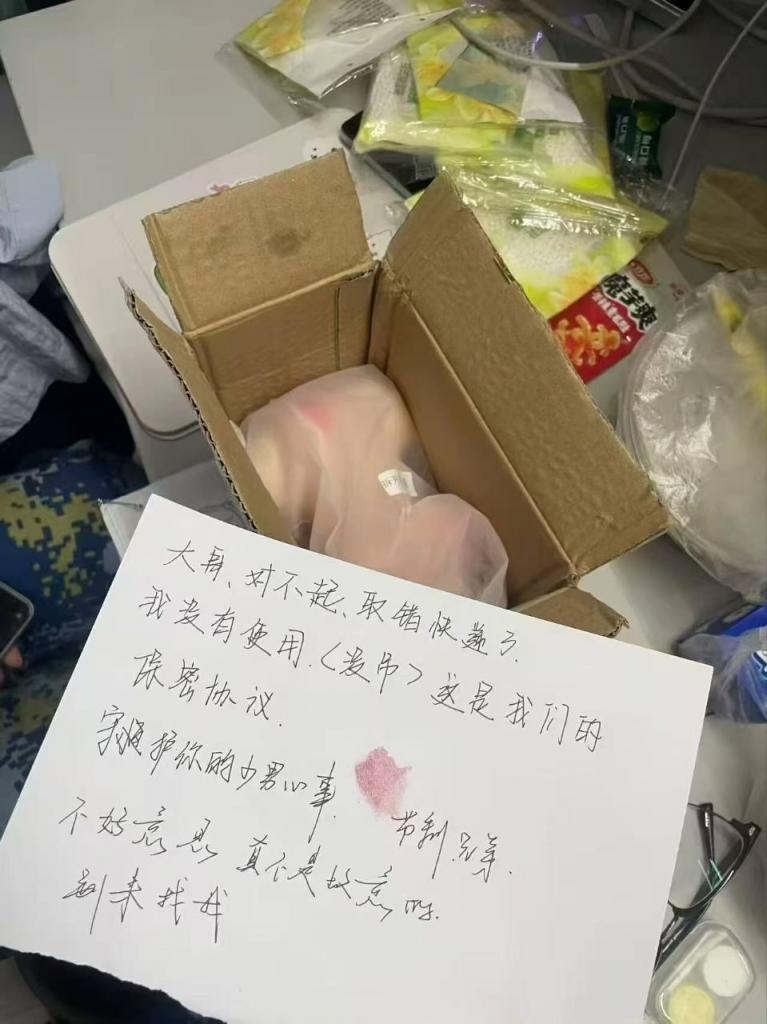 魔芋爽
大哥、对不起、取错快递了.
我没有使用.（发币）这是我们的
保密协议.
守护你的少男心事.
节制兄弟.
不好意思 真不是故意的.
别来找我